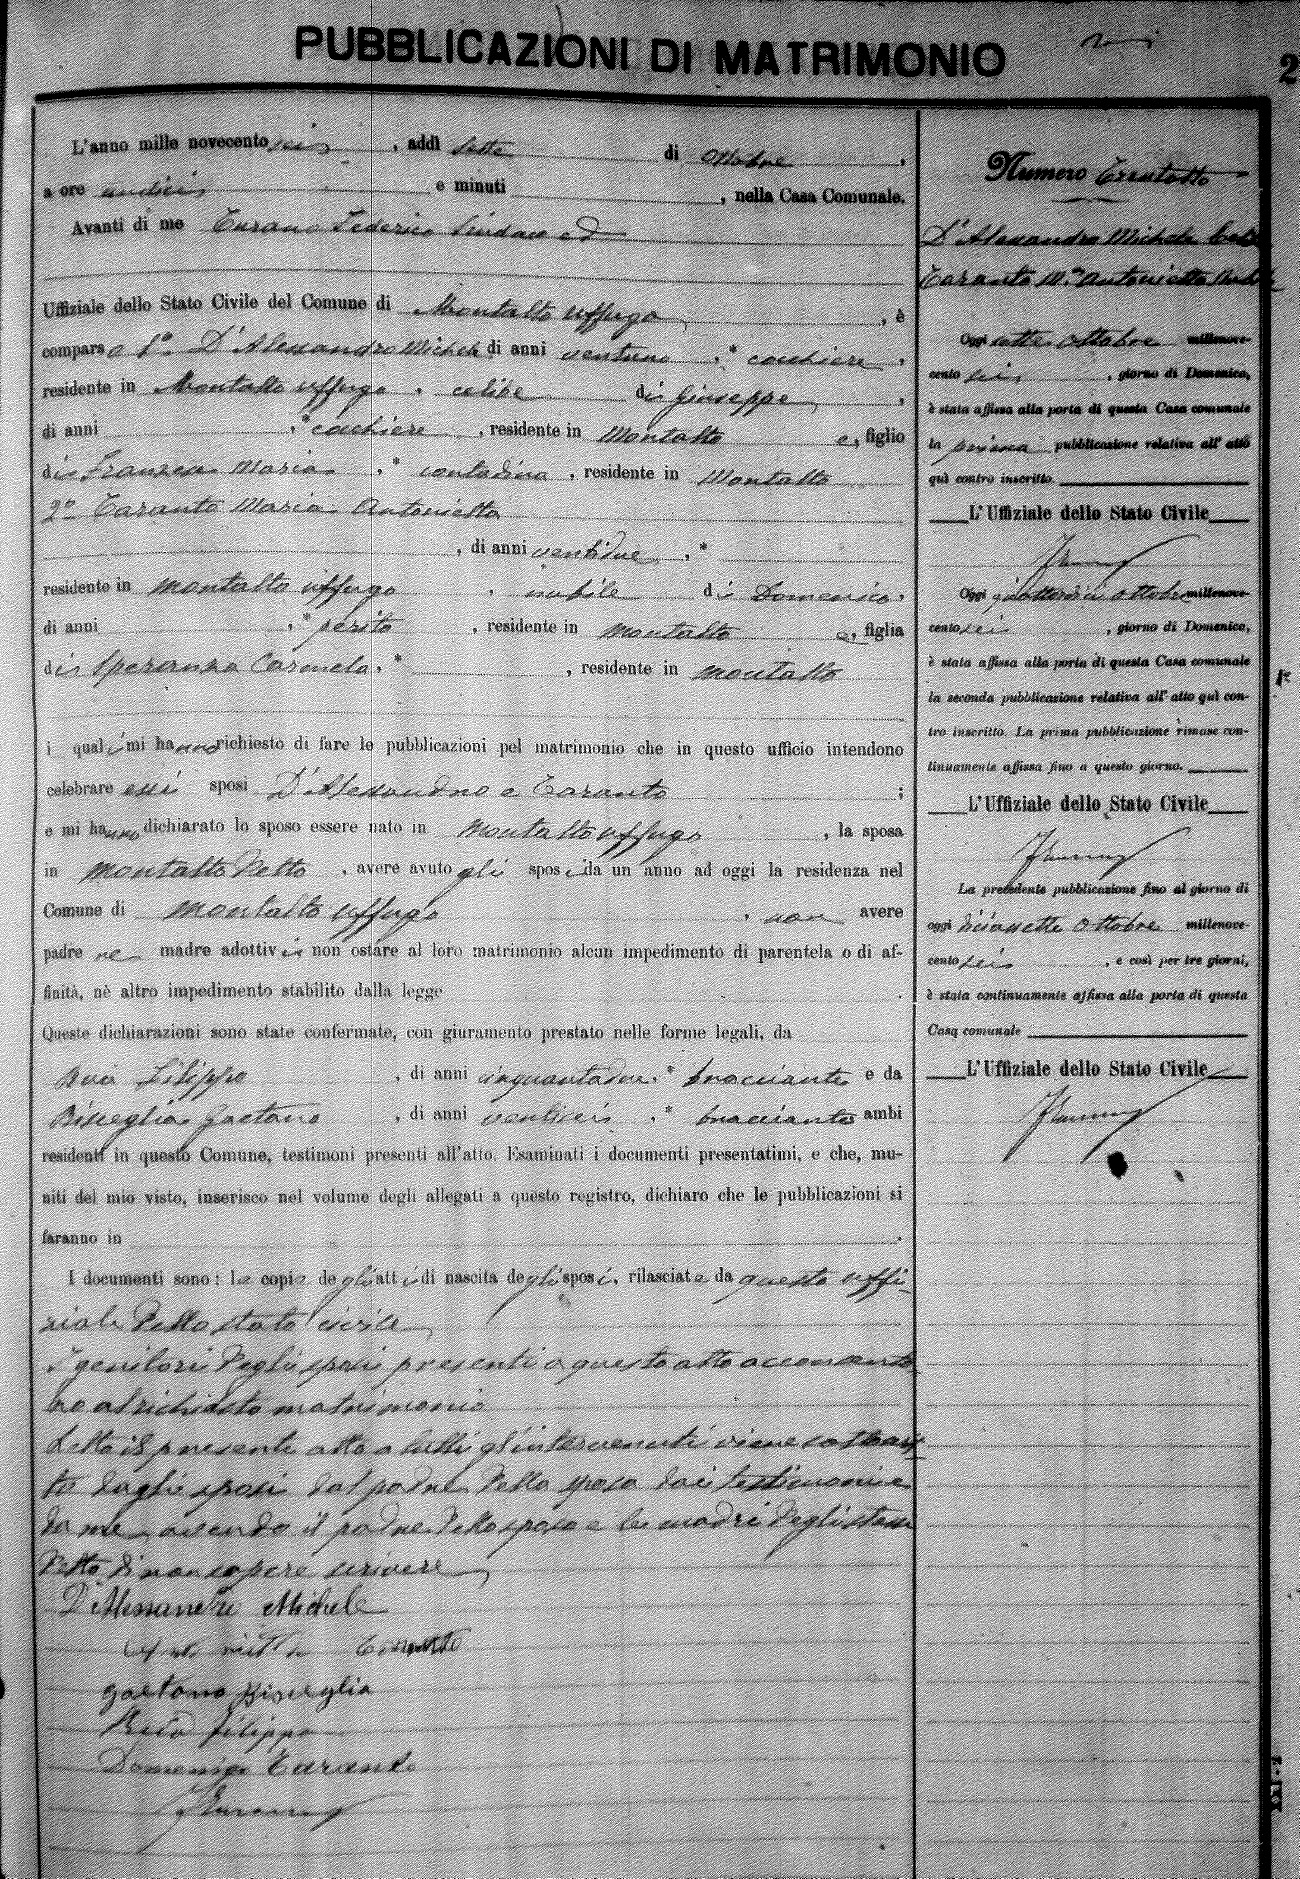 PUBBLICAZIONI DI MATRIMONIO
2
L'anno mille novecento sei, addì sette di Ottobre,
a ore undici e minuti , nella Casa Comunale.
Avanti di me Turano Federico Sindaco ed
Uffiziale dello Stato Civile del Comune di Montalto Uffugo, è
comparso 1º D'Alessandro Michele di anni ventuno, * cocchiere,
residente in Montalto Uffugo, celibe di Giuseppe,
di anni , * cocchiere, residente in Montalto e, figlio
di Maria, * contadina, residente in Montalto
2º Taranto Maria Antonietta
, di anni ventidue, *
residente in Montalto Uffugo, nubile di Domenico,
di anni , * perito, residente in Montalto e, figlia
di Speranza Carmela, * , residente in Montalto
i quali mi hanno richiesto di fare le pubblicazioni pel matrimonio che in questo ufficio intendono
celebrare essi sposi D'Alessandro e Taranto ;
e mi hanno dichiarato lo sposo essere nato in Montalto Uffugo, la sposa
in Montalto detto, avere avuto gli sposi da un anno ad oggi la residenza nel
Comune di Montalto Uffugo, non avere
padre ne madre adottivi non ostare al loro matrimonio alcun impedimento di parentela o di af-
finità, nè altro impedimento stabilito dalla legge .
Queste dichiarazioni sono state confermate, con giuramento prestato nelle forme legali, da
Filippo, di anni cinquantadue, * bracciante e da
Bisceglia Gaetano, di anni ventisei, * bracciante ambi
residenti in questo Comune, testimoni presenti all'atto. Esaminati i documenti presentatimi, e che, mu-
niti del mio visto, inserisco nel volume degli allegati a questo registro, dichiaro che le pubblicazioni si
faranno in .
I documenti sono: Le copie degli atti di nascita degli sposi, rilasciate da questo uffi-
ziale dello stato civile
I genitori degli sposi presenti a questo atto acconsento
no al richiesto matrimonio
Letto il presente atto a tutti gl'intervenuti viene sottoscrit
to dagli sposi dal padre della sposa dai testimoni e
da me, avendo il padre dello sposo e le madri degli stessi
detto di non sapere scrivere
D'Alessandro Michele
Taranto
Gaetano Bisceglia
Filippo
Domenico Taranto
FTurano
Numero Trentotto
D'Alessandro Michele
Taranto M.ª Antonietta
Oggi sette Ottobre millenove-
cento sei, giorno di Domenica,
è stata affissa alla porta di questa Casa comunale
la prima pubblicazione relativa all'atto
quì contro inscritto.
L'Uffiziale dello Stato Civile
FTurano
Oggi quattordici Ottobre millenove-
cento sei, giorno di Domenica,
è stata affissa alla porta di questa Casa comunale
la seconda pubblicazione relativa all'atto quì con-
tro inscritto. La prima pubblicazione rimase con-
tinuamente affissa fino a questo giorno.
L'Uffiziale dello Stato Civile
FTurano
La precedente pubblicazione fino al giorno di
oggi diciassette Ottobre millenove-
cento sei, e così per tre giorni,
è stata continuamente affissa alla porta di questa
Casa comunale
L'Uffiziale dello Stato Civile
FTurano